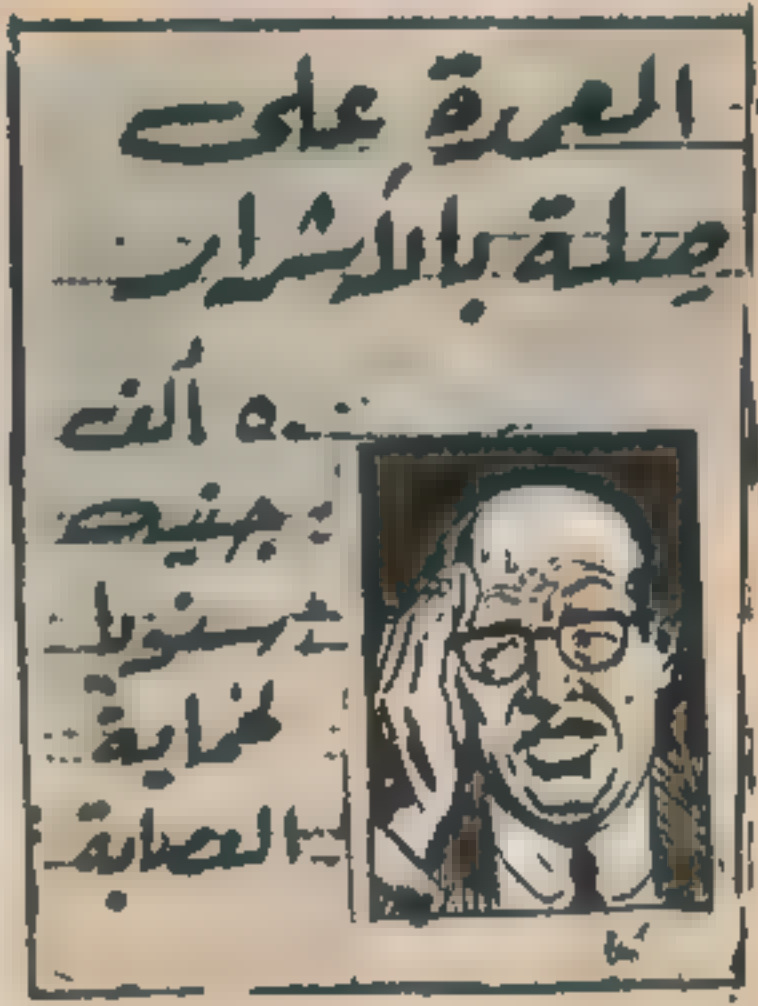 العمدة على
صلة بالأشرار
٥٠ ألف
جنيه
سنويا
لحماية
العصابة